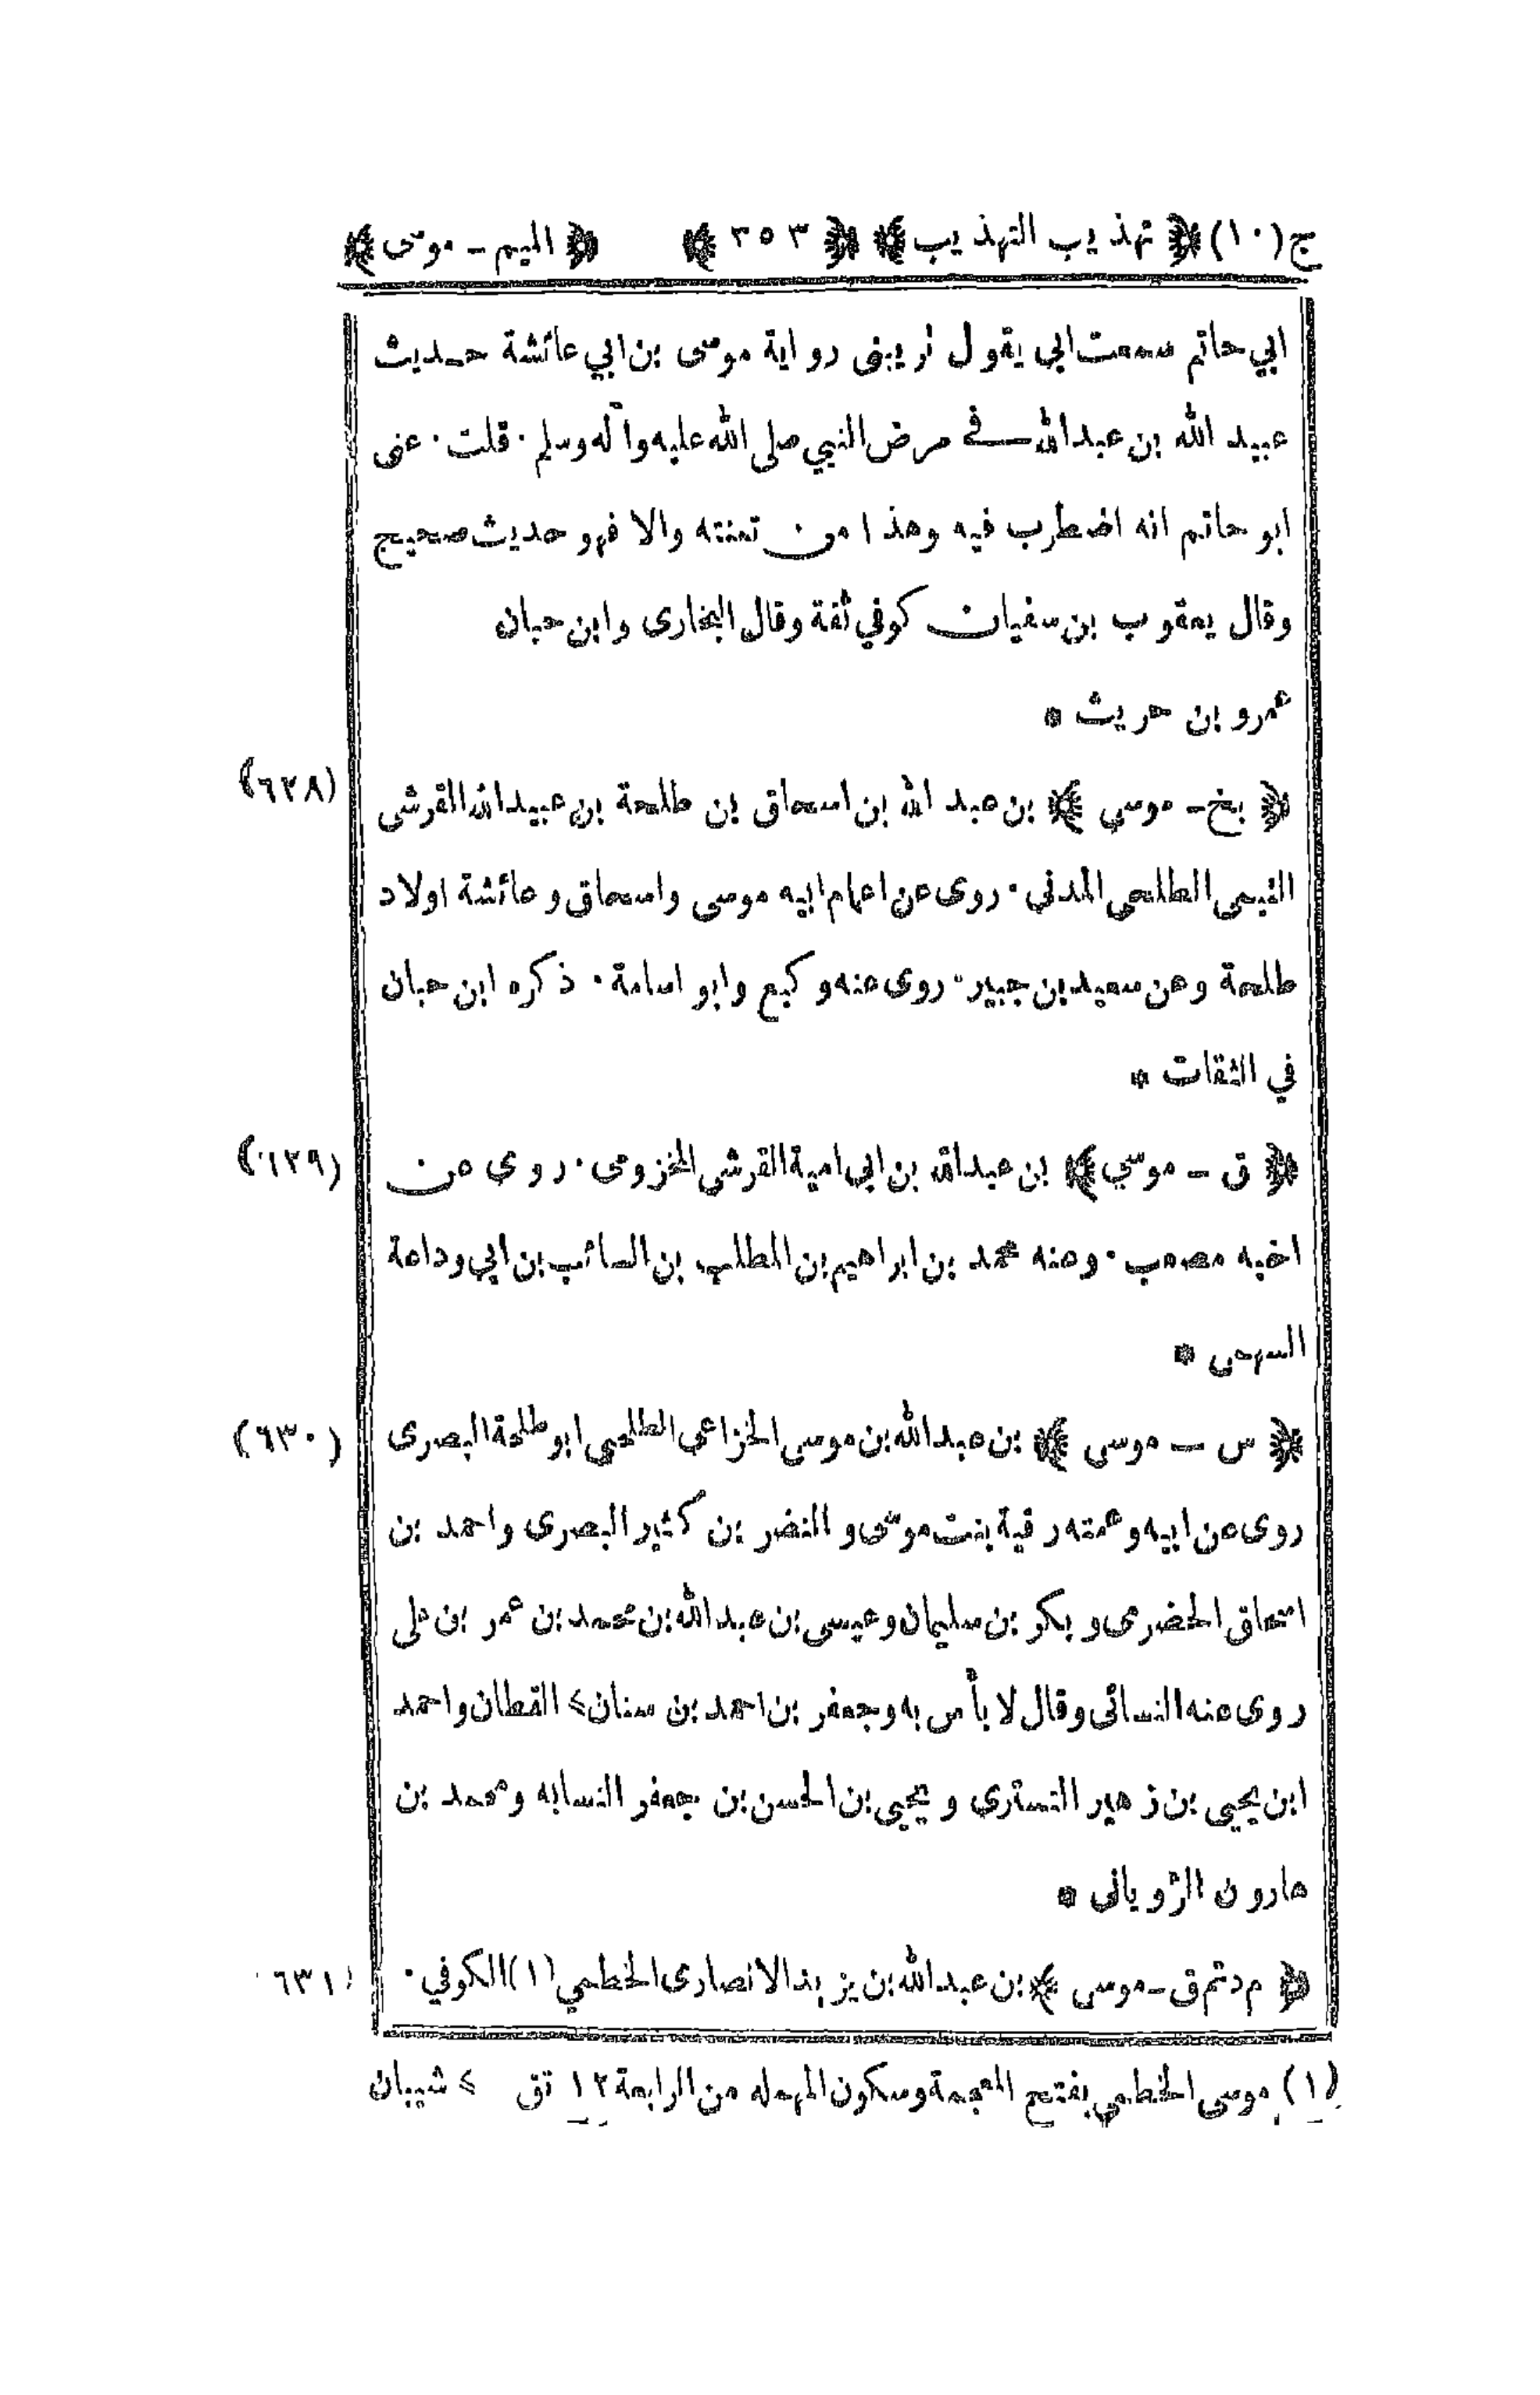 ج(١٠) ﴿ تهذيب التهذيب ﴾ ﴿ ٣٥٣ ﴾ ﴿ الميم - موسى ﴾
ابي حاتم سمعت ابي يقول تريبنى رواية موسى بن ابي عائشة حديث
عبيد الله بن عبد الله في مرض النبي صلى الله عليه وآله وسلم · قلت · عنى
ابو حاتم انه اضطرب فيه وهذا من تعنته والا فهو حديث صحيح
وقال يعقوب بن سفيان كوفي ثقة وقال البخارى وابن حبان
عمرو بن حريث *
(٦٢٨) ﴿ بخ - موسي ﴾ بن عبد الله بن اسحاق بن طلحة بن عبيد الله القرشى
التيمى الطلحى المدني · روى عن اعمام ابيه موسى واسحاق وعائشة اولاد
طلحة وعن سعيد بن جبير · روى عنه وكيع وابو اسامة · ذكره ابن حبان
في الثقات *
(٦٢٩) ﴿ ق - موسي ﴾ بن عبد الله بن ابي امية القرشى المخزومى · روى عن
اخيه مصعب · وعنه محمد بن ابراهيم بن المطلب بن السائب بن ابي وداعة
السهمى *
(٦٣٠) ﴿ س - موسى ﴾ بن عبد الله بن موسى الخزاعي الطلحي ابو طلحة البصرى
روى عن ابيه وعمته رقية بنت موسى والنضر بن كثير البصرى واحمد بن
اسحاق الحضرمى وبكر بن سليمان وعيسى بن عبد الله بن محمد بن عمر بن على
روى عنه النسائى وقال لا بأس به وجعفر بن احمد بن سنان> القطان واحمد
ابن يحيى بن زهير التسترى ويحيى بن الحسن بن جعفر النسابه ومحمد بن
هارون الرويانى *
(٦٣١ ﴿ م د تم ق - موسى ﴾ بن عبد الله بن يزيد الانصارى الخطمي (١) الكوفي ·
(١) موسى الخطمي بفتح المعجمة وسكون المهمله من الرابعة ١٢ تق > شيبان